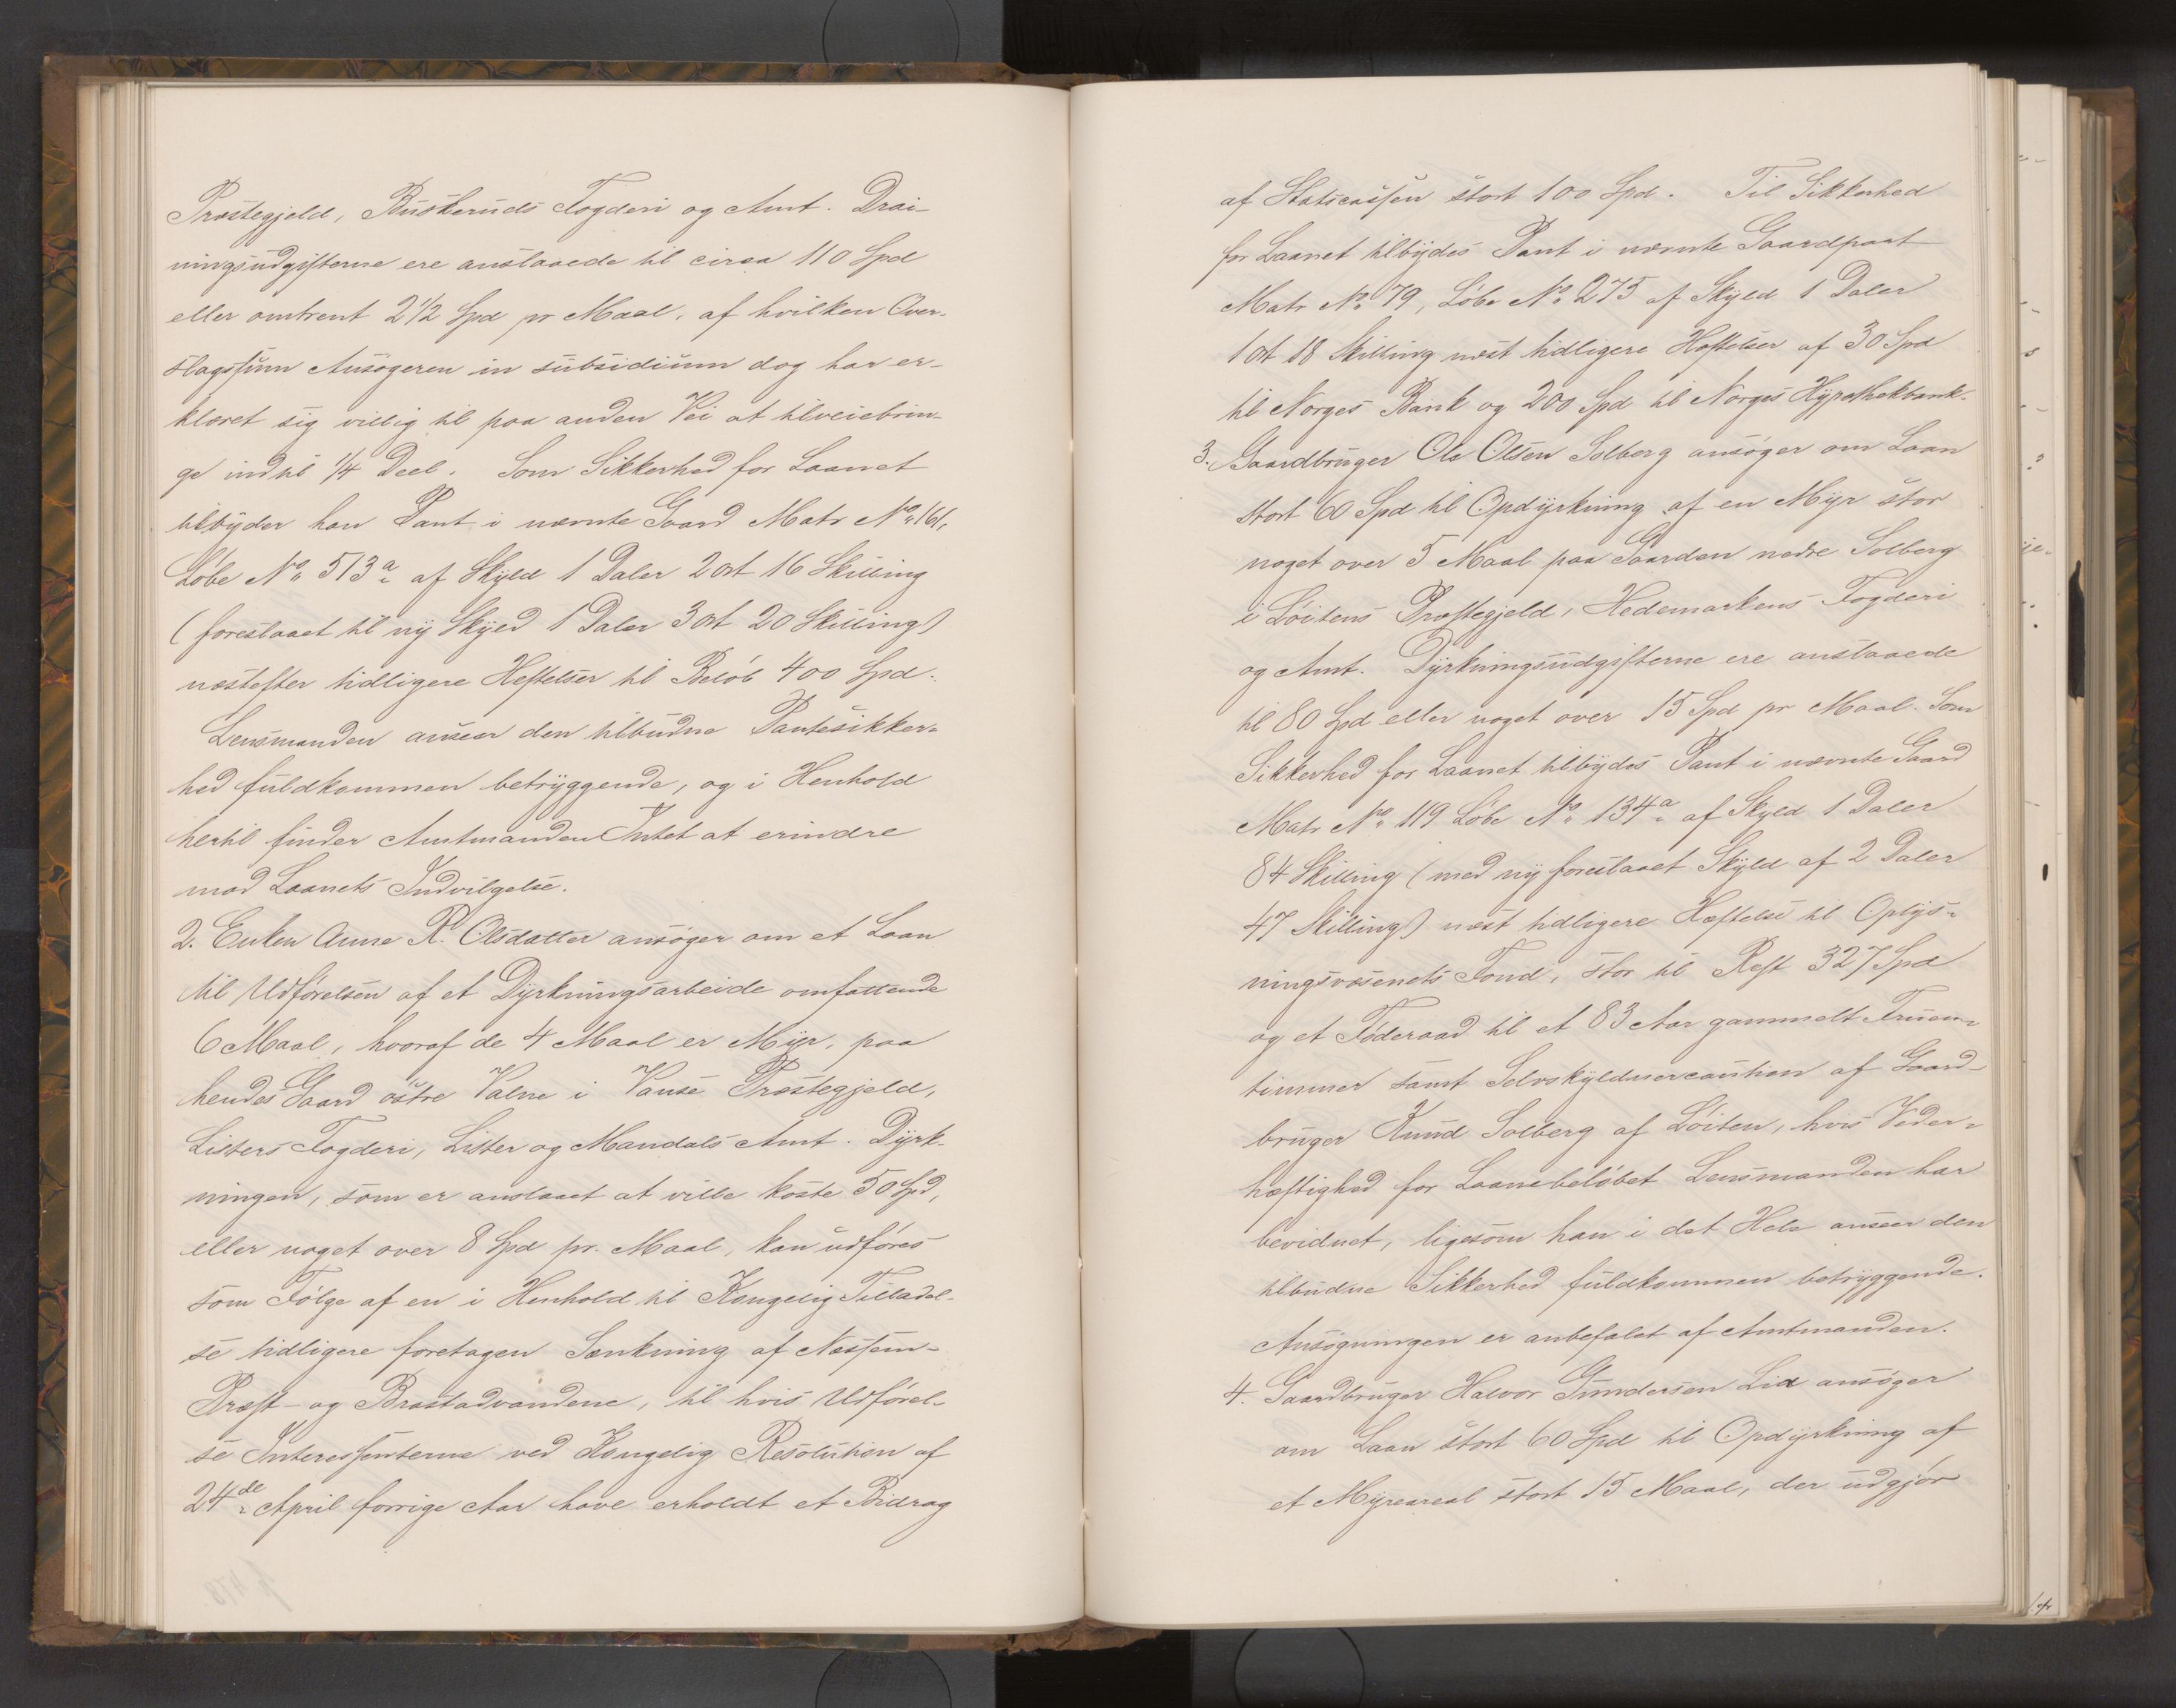 Præstegjeld, Buskeruds Fogderi og Amt. Drai-
ningsudgifterne ere anslaaede til circa 110 Spd
eller omtrent 2 1/2 Spd pr Maal, af hvilken Over-
slagssum Ansøgeren in subsidium dog har er-
klæret sig villig til paa anden Vei at tilveiebrin-
ge indtil 1/4 Deel. Som Sikkerhed for Laanet
tilbyder han Pant i nævnte Gaard Matr No 161,
Løbe No 513a af Skyld 1 Daler 2 ort 16 Skilling
(foreslaaet til ny Skyld 1 Daler 3 ort 20 Skilling)
næstefter tidligere Heftelser til Beløb 400 Spd.
Lensmanden anseer den tilbudne Pantesikker-
hed fuldkommen betryggende, og i Henhold
hertil finder Amtmanden Intet at erindre
mod Laanets Indvilgelse.
2. Enken Anne R. Olsdatter ansøger om et Laan
til Udførelsen af et Dyrkningsarbeide omfattende
6 Maal, hvoraf de 4 Maal er Myr, paa
hendes Gaard østre Valne i Vanse Præstegjeld,
Listers Fogderi, Lister og Mandals Amt. Dyrk-
ningen, som er anslaaet at ville koste 50 Spd,
eller noget over 8 Spd pr. Maal, kan udføres
som Følge af en i Henhold til Kongelig Tilladel-
se tidligere foretagen Sænkning af Næssem-
Præst- og Brastadvandene, til hvis Udførel-
se Interessenterne ved Kongelig Resolution af
24de April forrige Aar have erholdt et Bidrag
af Statscassen stort 100 Spd. Til Sikkerhed
for Laanet tilbydes Pant i nævnte Gaardpart
Matr No 79, Løbe No 275 af Skyld 1 Daler
1 ort 18 Skilling næst tidligere Hæftelser af 30 Spd
til Norges Bank og 200 Spd til Norges Hypothekbank.
3. Gaardbruger Ole Olsen Solberg ansøger om Laan
stort 60 Spd til Opdyrkning af en Myr stor
noget over 5 Maal paa Gaarden nedre Solberg
i Løitens Præstegjeld, Hedemarkens Fogderi
og Amt. Dyrkningsudgifterne ere anslaaede
til 80 Spd eller noget over 15 Spd pr Maal. Som
Sikkerhed for Laanet tilbydes Pant i nævnte Gaard
Matr No 119 Løbe No 134a af Skyld 1 Daler
84 Skilling (med ny foreslaaet Skyld af 2 Daler
47 Skilling) næst tidligere Hæftelse til Oplys-
ningsvæsenets Fond, stor til Rest 327 Spd
og et Føderaad til et 83 Aar gammelt Fruen-
timmer samt Selvskyldnercaution af Gaard-
bruger Knud Solberg af Løiten, hvis Veder-
hæftighed for Laanebeløbet Lensmanden har
bevidnet, ligesom han i det Hele anseer den
tilbudne Sikkerhed fuldkommen betryggende.
Ansøgningen er anbefalet af Amtmanden.
4. Gaardbruger Halvor Gundersen Lia ansøger
om Laan stort 60 Spd til Opdyrkning af
et Myreareal stort 15 Maal, der udgjør